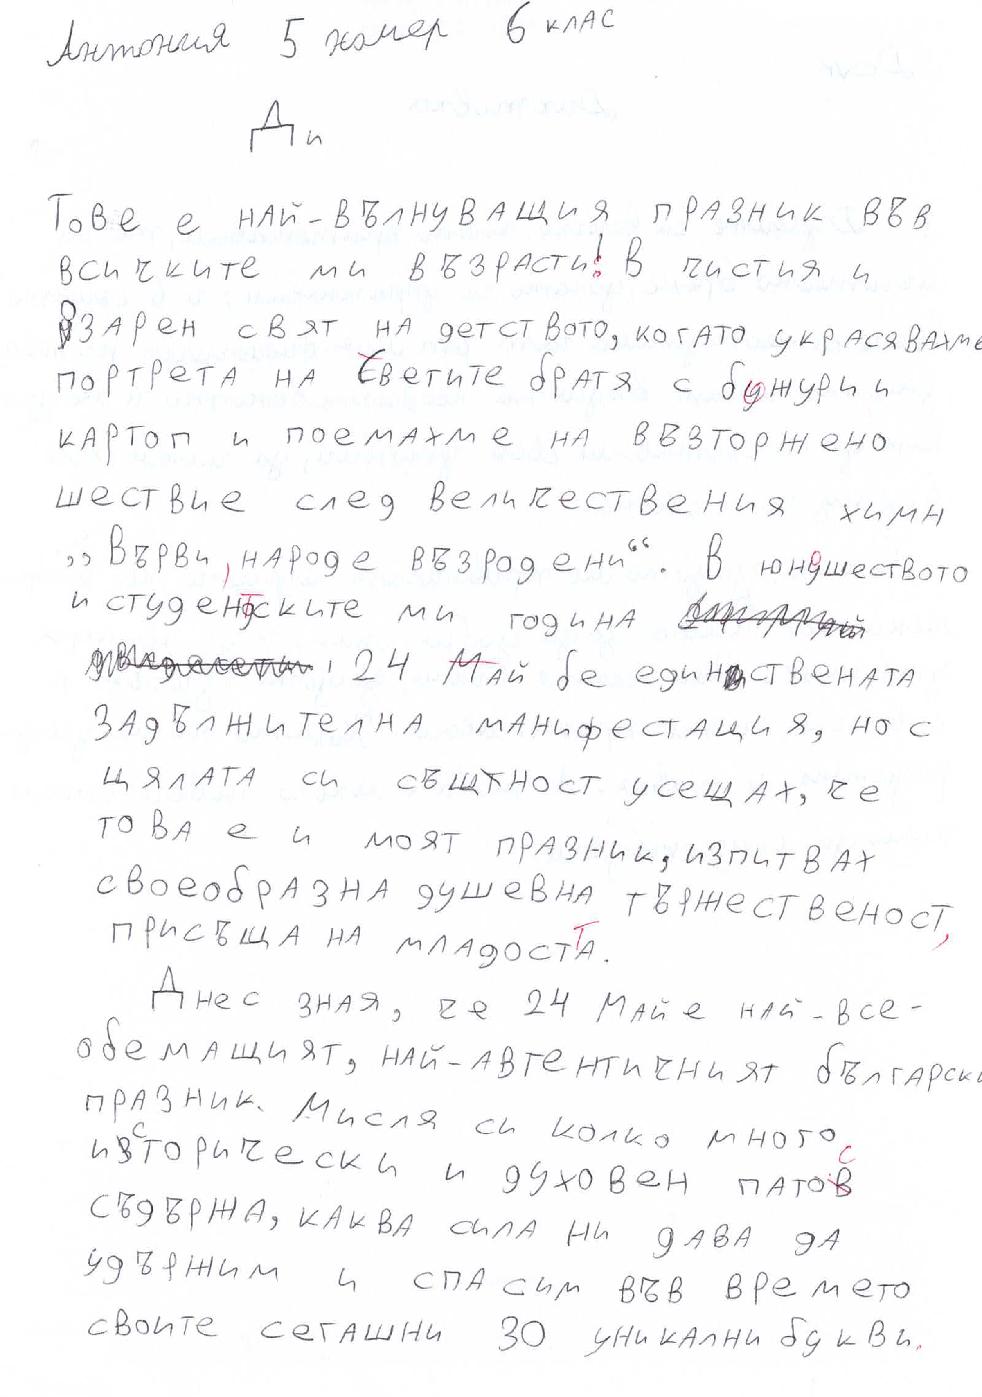 Антония 5 номер 6 клас
Ди
Тове е най-вълнуващия празник във
всичките ми възрасти! В чистия и
озарен свят на детството, когато украсявахме
портрета на светите братя с божури и
картоп и поемахме на възторжено
шествие след величествения химн
„Върви, народе възродени“. В юношеството
и студентските ми година
, 24 май бе единствената
задължителна манифестация, но с
цялата си същност усещах, че
това е и моят празник, изпитвах
своеобразна душевна тържественост,
присъща на младостта.
Днес зная, че 24 Май е най-все-
обемащият, най-автентичният български
празник. Мисля си колко много
исторически и духовен патос
съдържа, каква сила ни дава да
удържим и спасим във времето
своите сегашни 30 уникални букви.